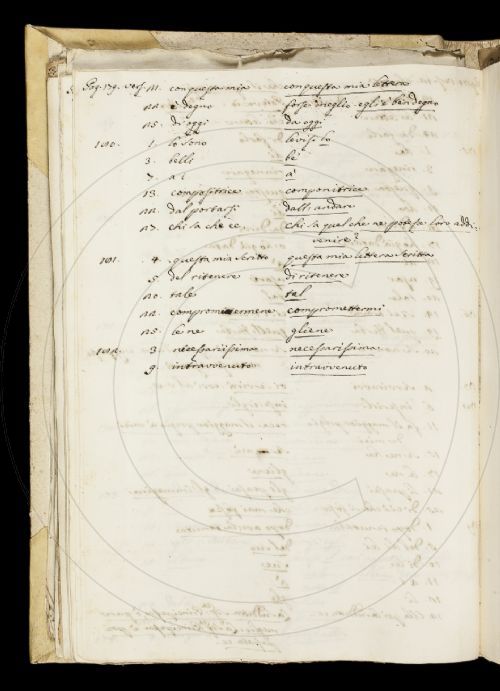 Pag. 179. vers. 11. con questa mia con questa mia lettera
12. è degno forse meglio egli è ben degno
15. di oggi da oggi
180. 1. lo sono levisi lo
3. belli be'
7. ai a'
13. compositrice componitrice
14. dal portarsi dall'andare
17. chi sa che ce chi sa quel che ne potesse loro addi-
venire?
181. 4. questa mia scritto questa mia lettera scritta
5. del ritenere di ritenere
10. tale tal
14. compromettermene compromettermi
15. le ne gliene
182. 3. necessariissima necessarissima
9. intravvenuto intravvenuto